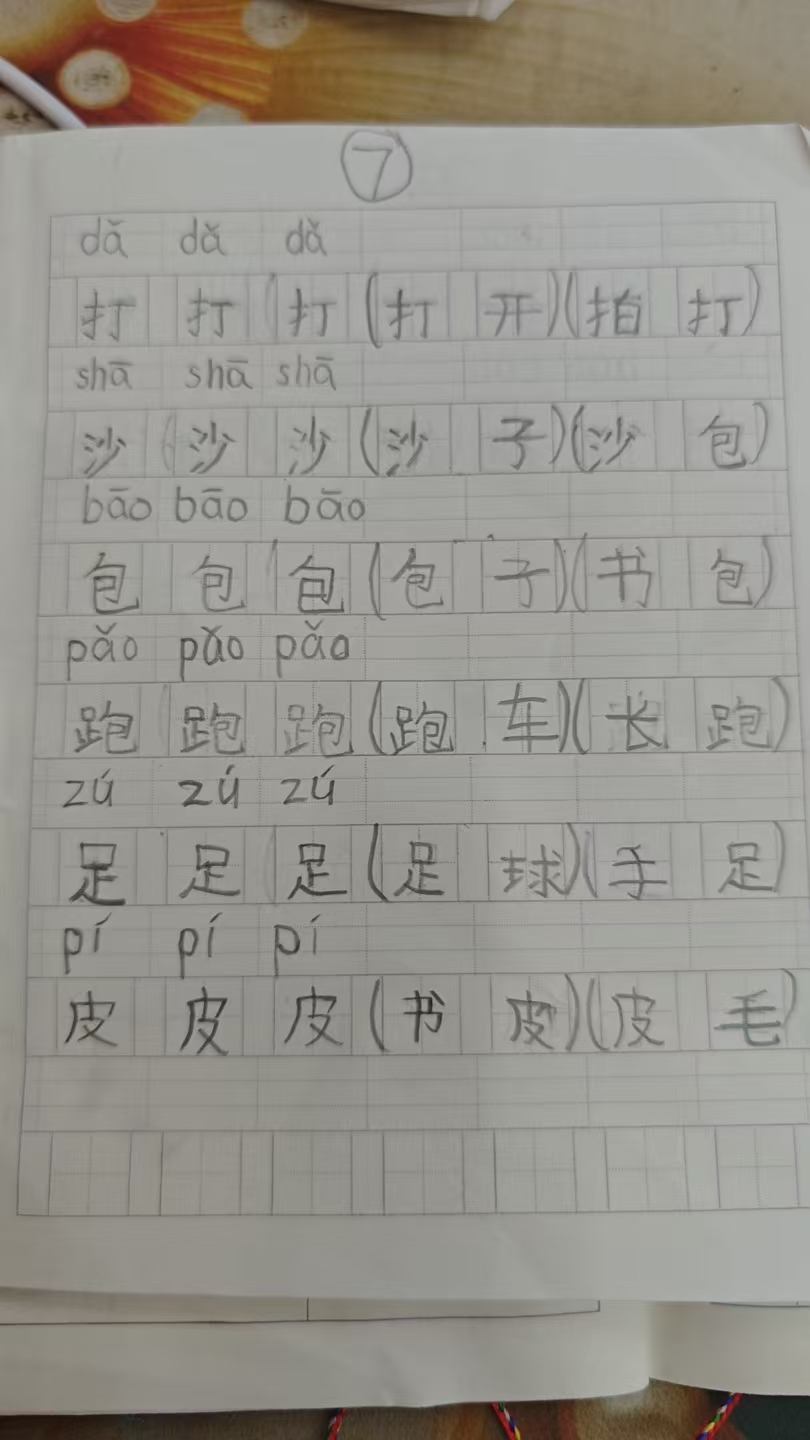 ⑦
dǎ dǎ dǎ
打 打 打 (打 开)(拍 打)
shā shā shā
沙 沙 沙 (沙 子)(沙 包)
bāo bāo bāo
包 包 包 (包 子)(书 包)
pǎo pǎo pǎo
跑 跑 跑 (跑 车)(长 跑)
zú zú zú
足 足 足 (足 球)(手 足)
pí pí pí
皮 皮 皮 (书 皮)(皮 毛)